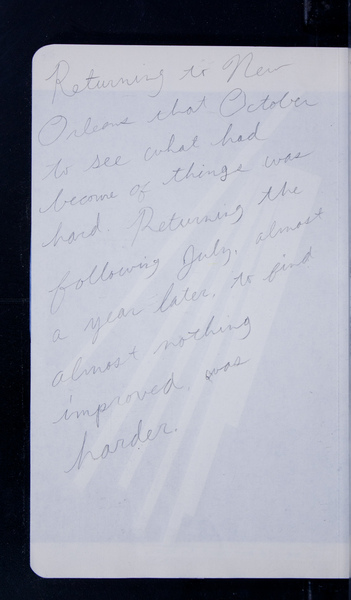 Returning to New
Orleans that October
to see what had
become of things was
hard. Returning the
following July, almost
a year later, to find
almost nothing
improved, was
harder.